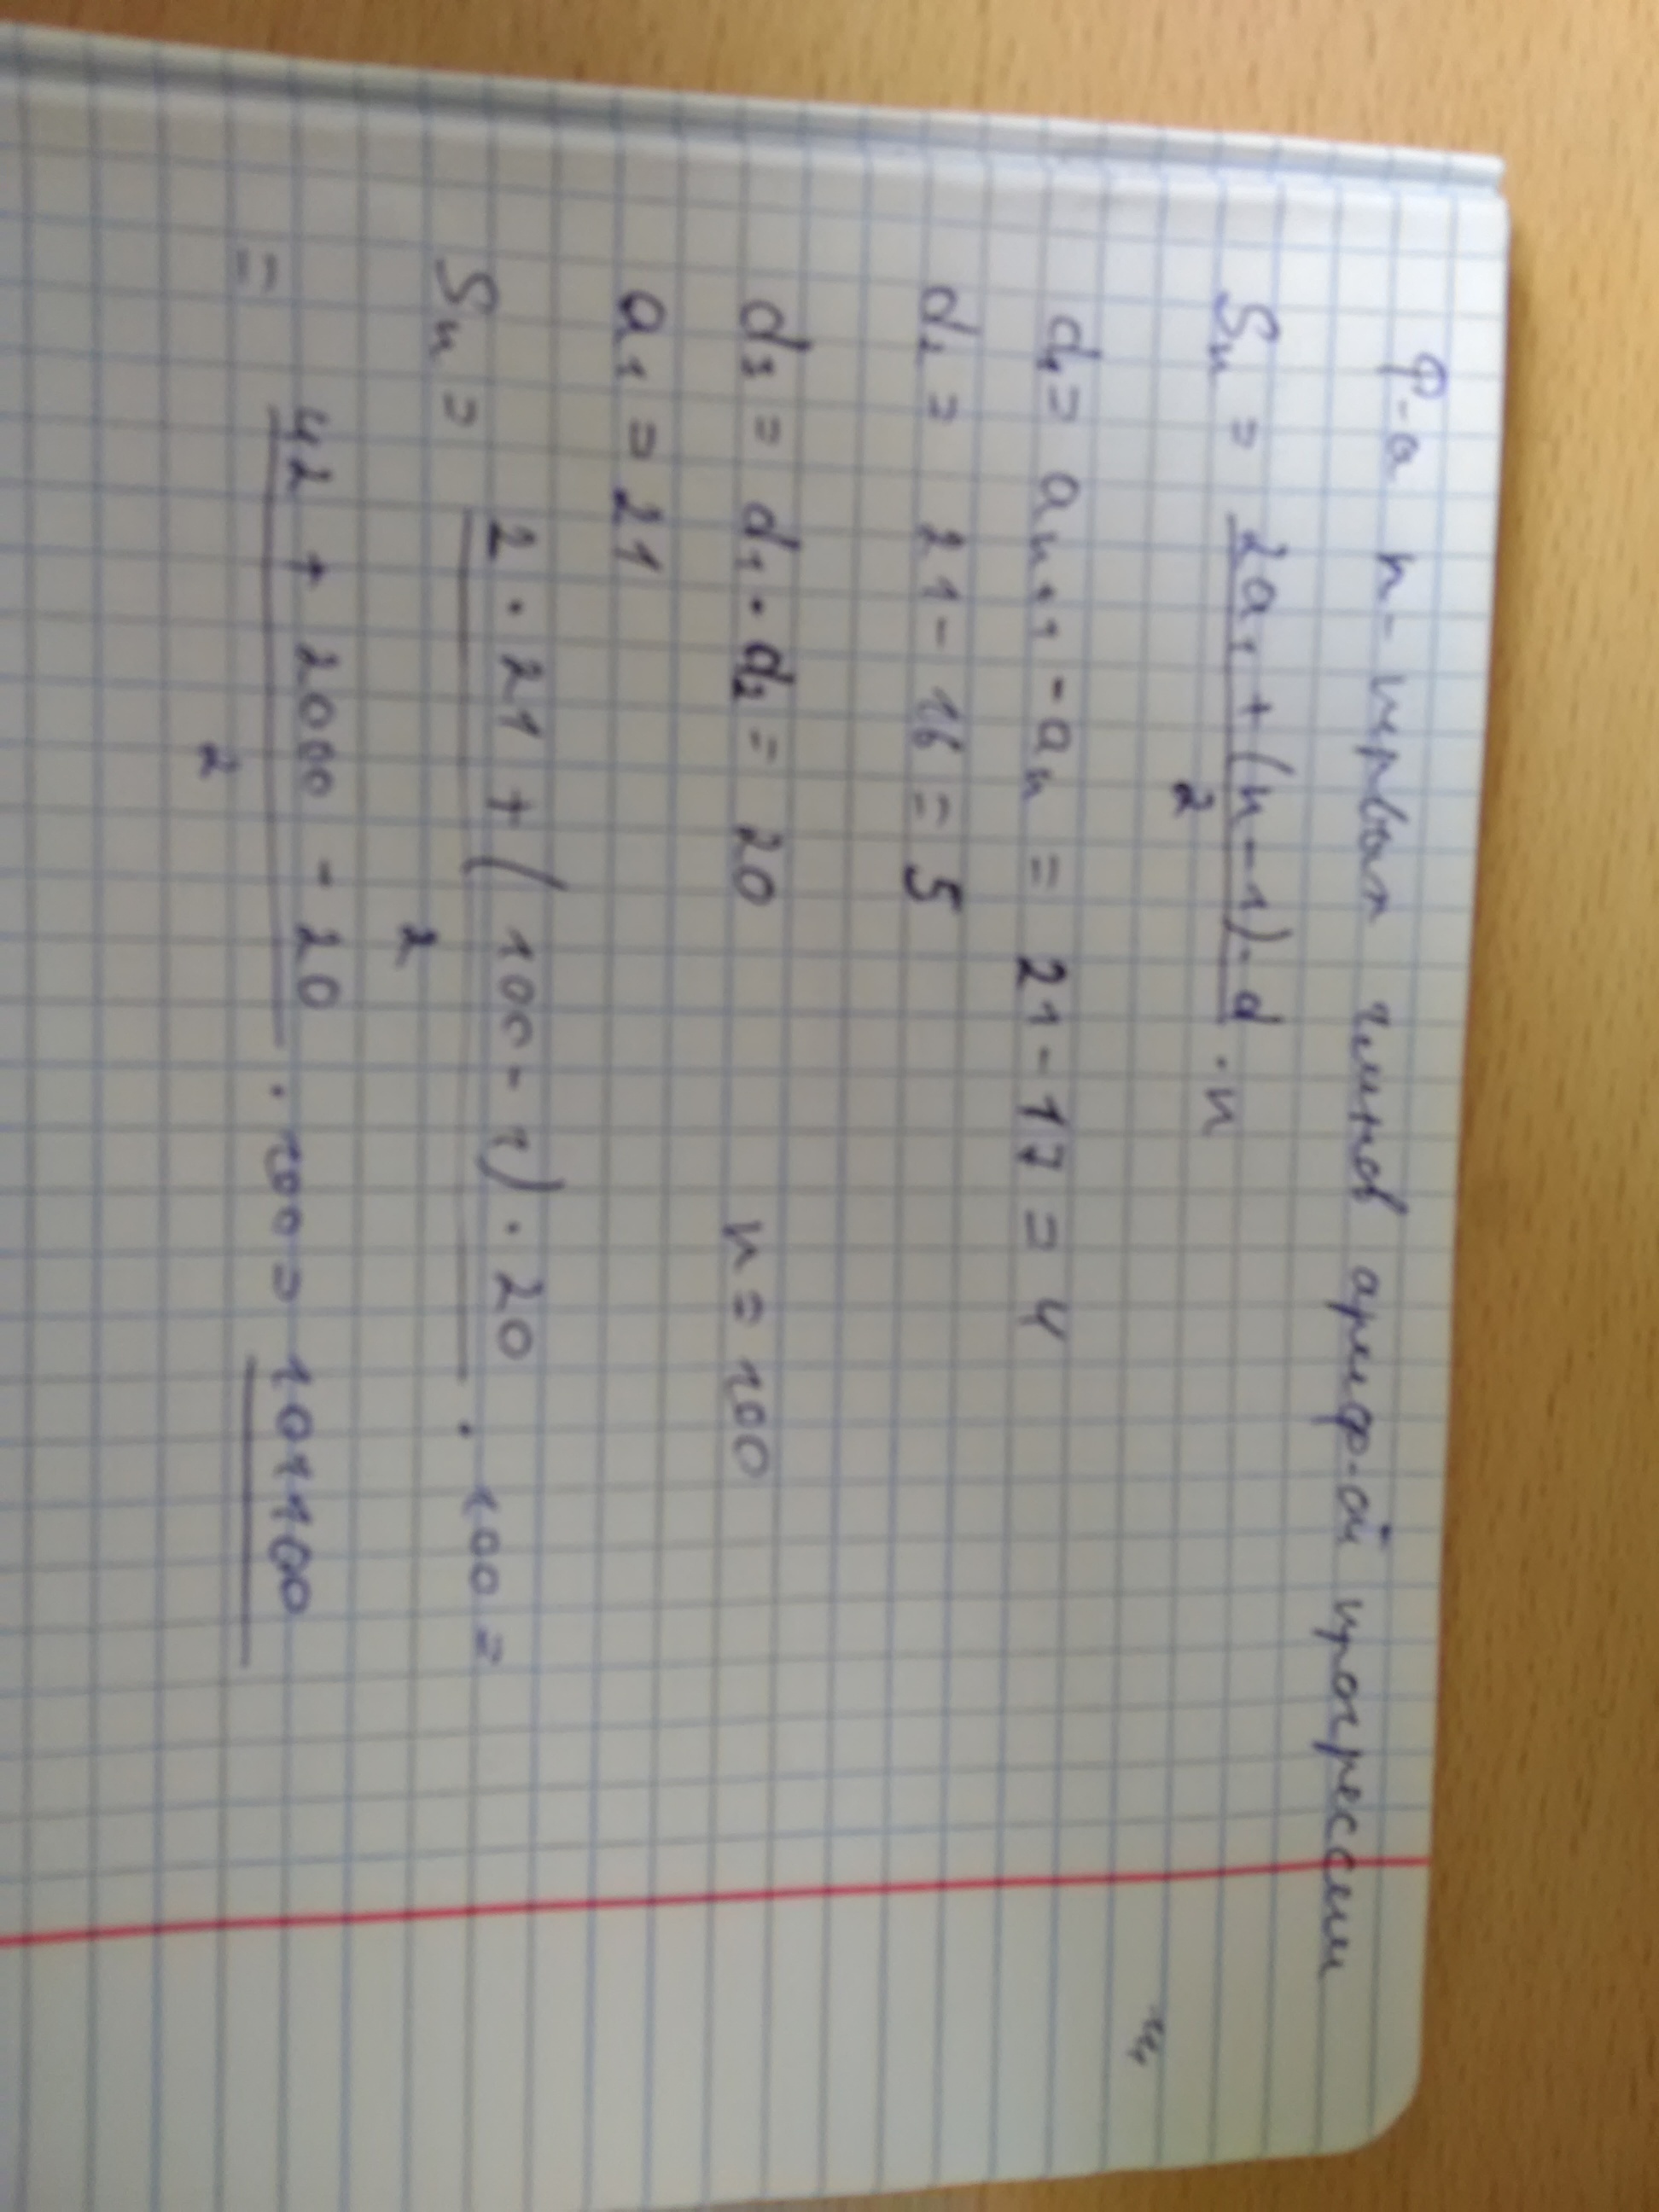 Ф-а n-первых членов арифм-ой прогрессии
Sn = 2a1 + (n-1)·d / 2 · n
d1 = an+1 - an = 21 - 17 = 4
d2 = 21 - 16 = 5
d3 = d1 · d2 = 20 n = 100
a1 = 21
Sn = 2 · 21 + (100 - 1) · 20 / 2 · 100 =
= 42 + 2000 - 20 / 2 · 100 = 101100